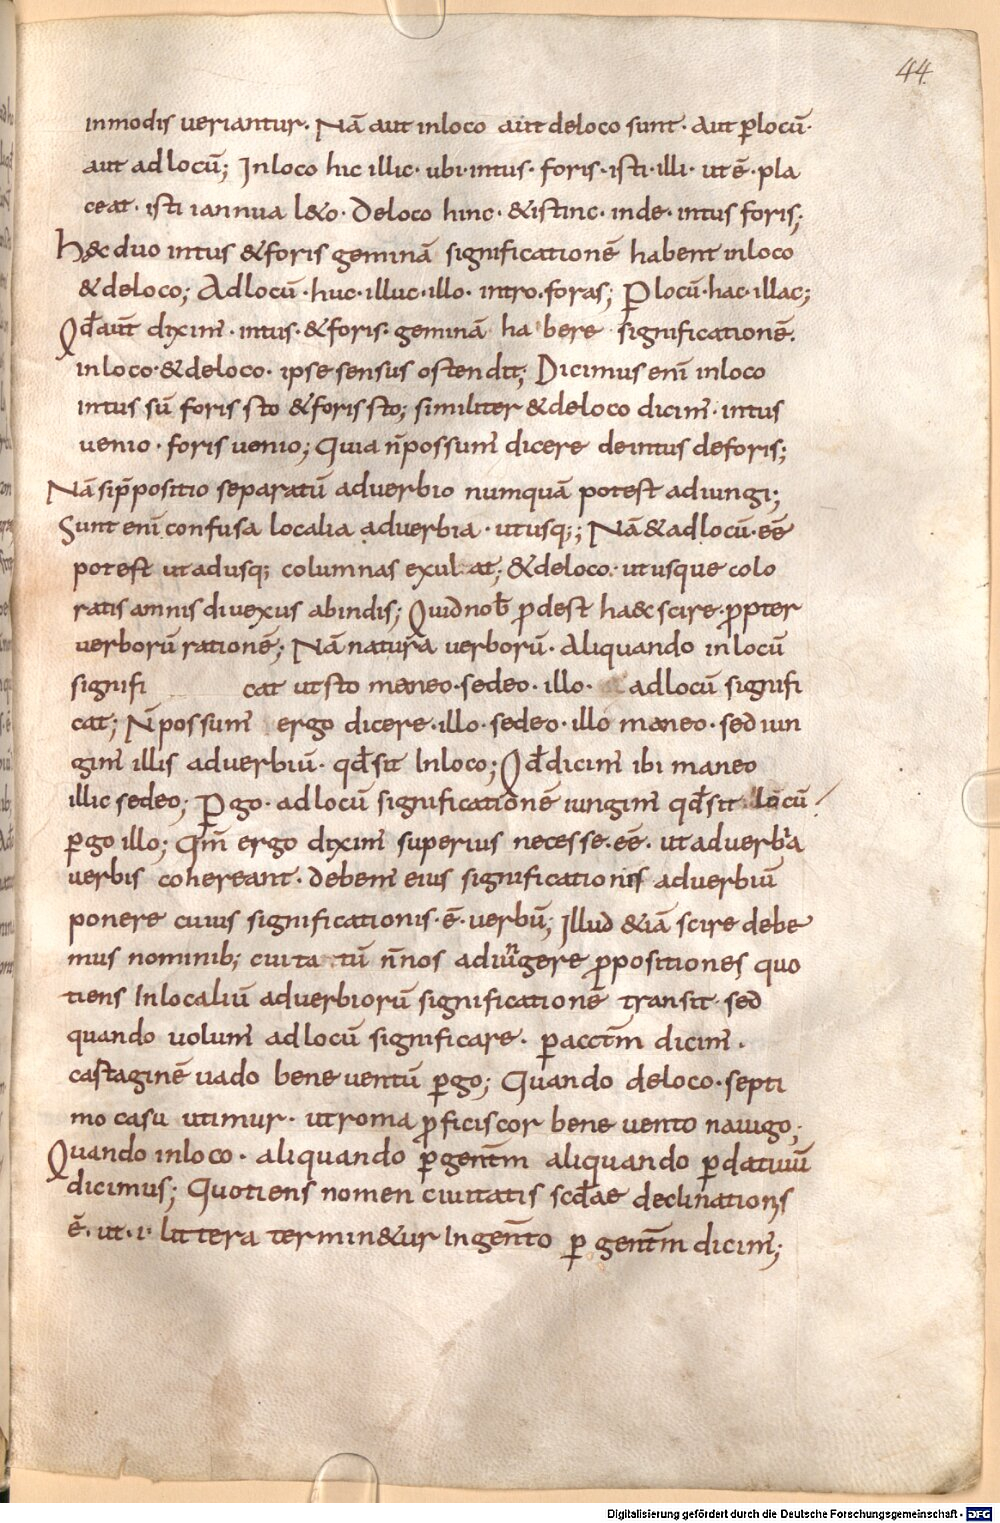 44
inmodis veriantur· Nā aut inloco aut deloco sunt· Aut ꝑlocū·
aut adlocū; Inloco hic illic· ubi· intus· foris· isti· illi· ut ē· pla
ceat· isti iannua l&o· Deloco hinc· &istinc· inde· intus foris;
H&c duo intus &foris geminā significationē habent inloco
&deloco; Adlocū· huc· illuc· illo· intro· foras; ꝑlocū· hac· illac;
Qđ aut̄ diximꝰ· intus· &foris· geminā habere significationē·
inloco· &deloco· ipse sensus ostendit; Dicimus enī inloco
intus sū foris sto &foris sto; similiter &deloco dicim̄· intus
venio· foris venio; Quia n̄possum̄ dicere deintus deforis;
Nā sip̄positio separatū adverbio numquā potest adiungi;
Sunt enī confusa localia adverbia· utusq;; Nā &adlocū· eē
potest utadusq; columnas exulat; &deloco· utusque colo
ratis amnis divexus abindis; Quid nob̄ ꝓdest ha&c scire· ꝓpter
verborū rationē; Nā natura verborū· Aliquando inlocū
signifi cat ut sto maneo· sedeo· illo· adlocū signifi
cat; N̄possum̄ ergo dicere· illo· sedeo· illo maneo· sed iun
gim̄ illis adverbiū· qđ sit Inloco; Qđ dicim̄ ibi maneo
illic sedeo; Ꝑgo· adlocū significationē iungim̄ qđ sit locū
ꝑgo illo; Qm̄ ergo dixim̄ superius necesse· eē· ut adverbia
verbis cohereant· Debem̄ eius significationis adverbiū
ponere cuius significationis· ē· verbū; Illud &iā scire debe
mus nominib; civitatū n̄nos adiungere p̄positiones quo
tiens Inlocaliū adverbiorū significationē transit· sed
quando volum̄ adlocū significare· ꝑ acctm̄ dicim̄·
castaginē vado beneventū ꝑgo; Quando deloco· septi
mo casu utimur· ut roma ꝓficiscor benevento navigo;
Quando inloco· aliquando ꝑ gentm̄ aliquando ꝑ dativū
dicimus; Quotiens nomen civitatis scdae declinationis
ē· ut· i· littera termin&ur Ingen̄to ꝑ gentm̄ dicim̄;
Digitalisierung gefördert durch die Deutsche Forschungsgemeinschaft - DFG